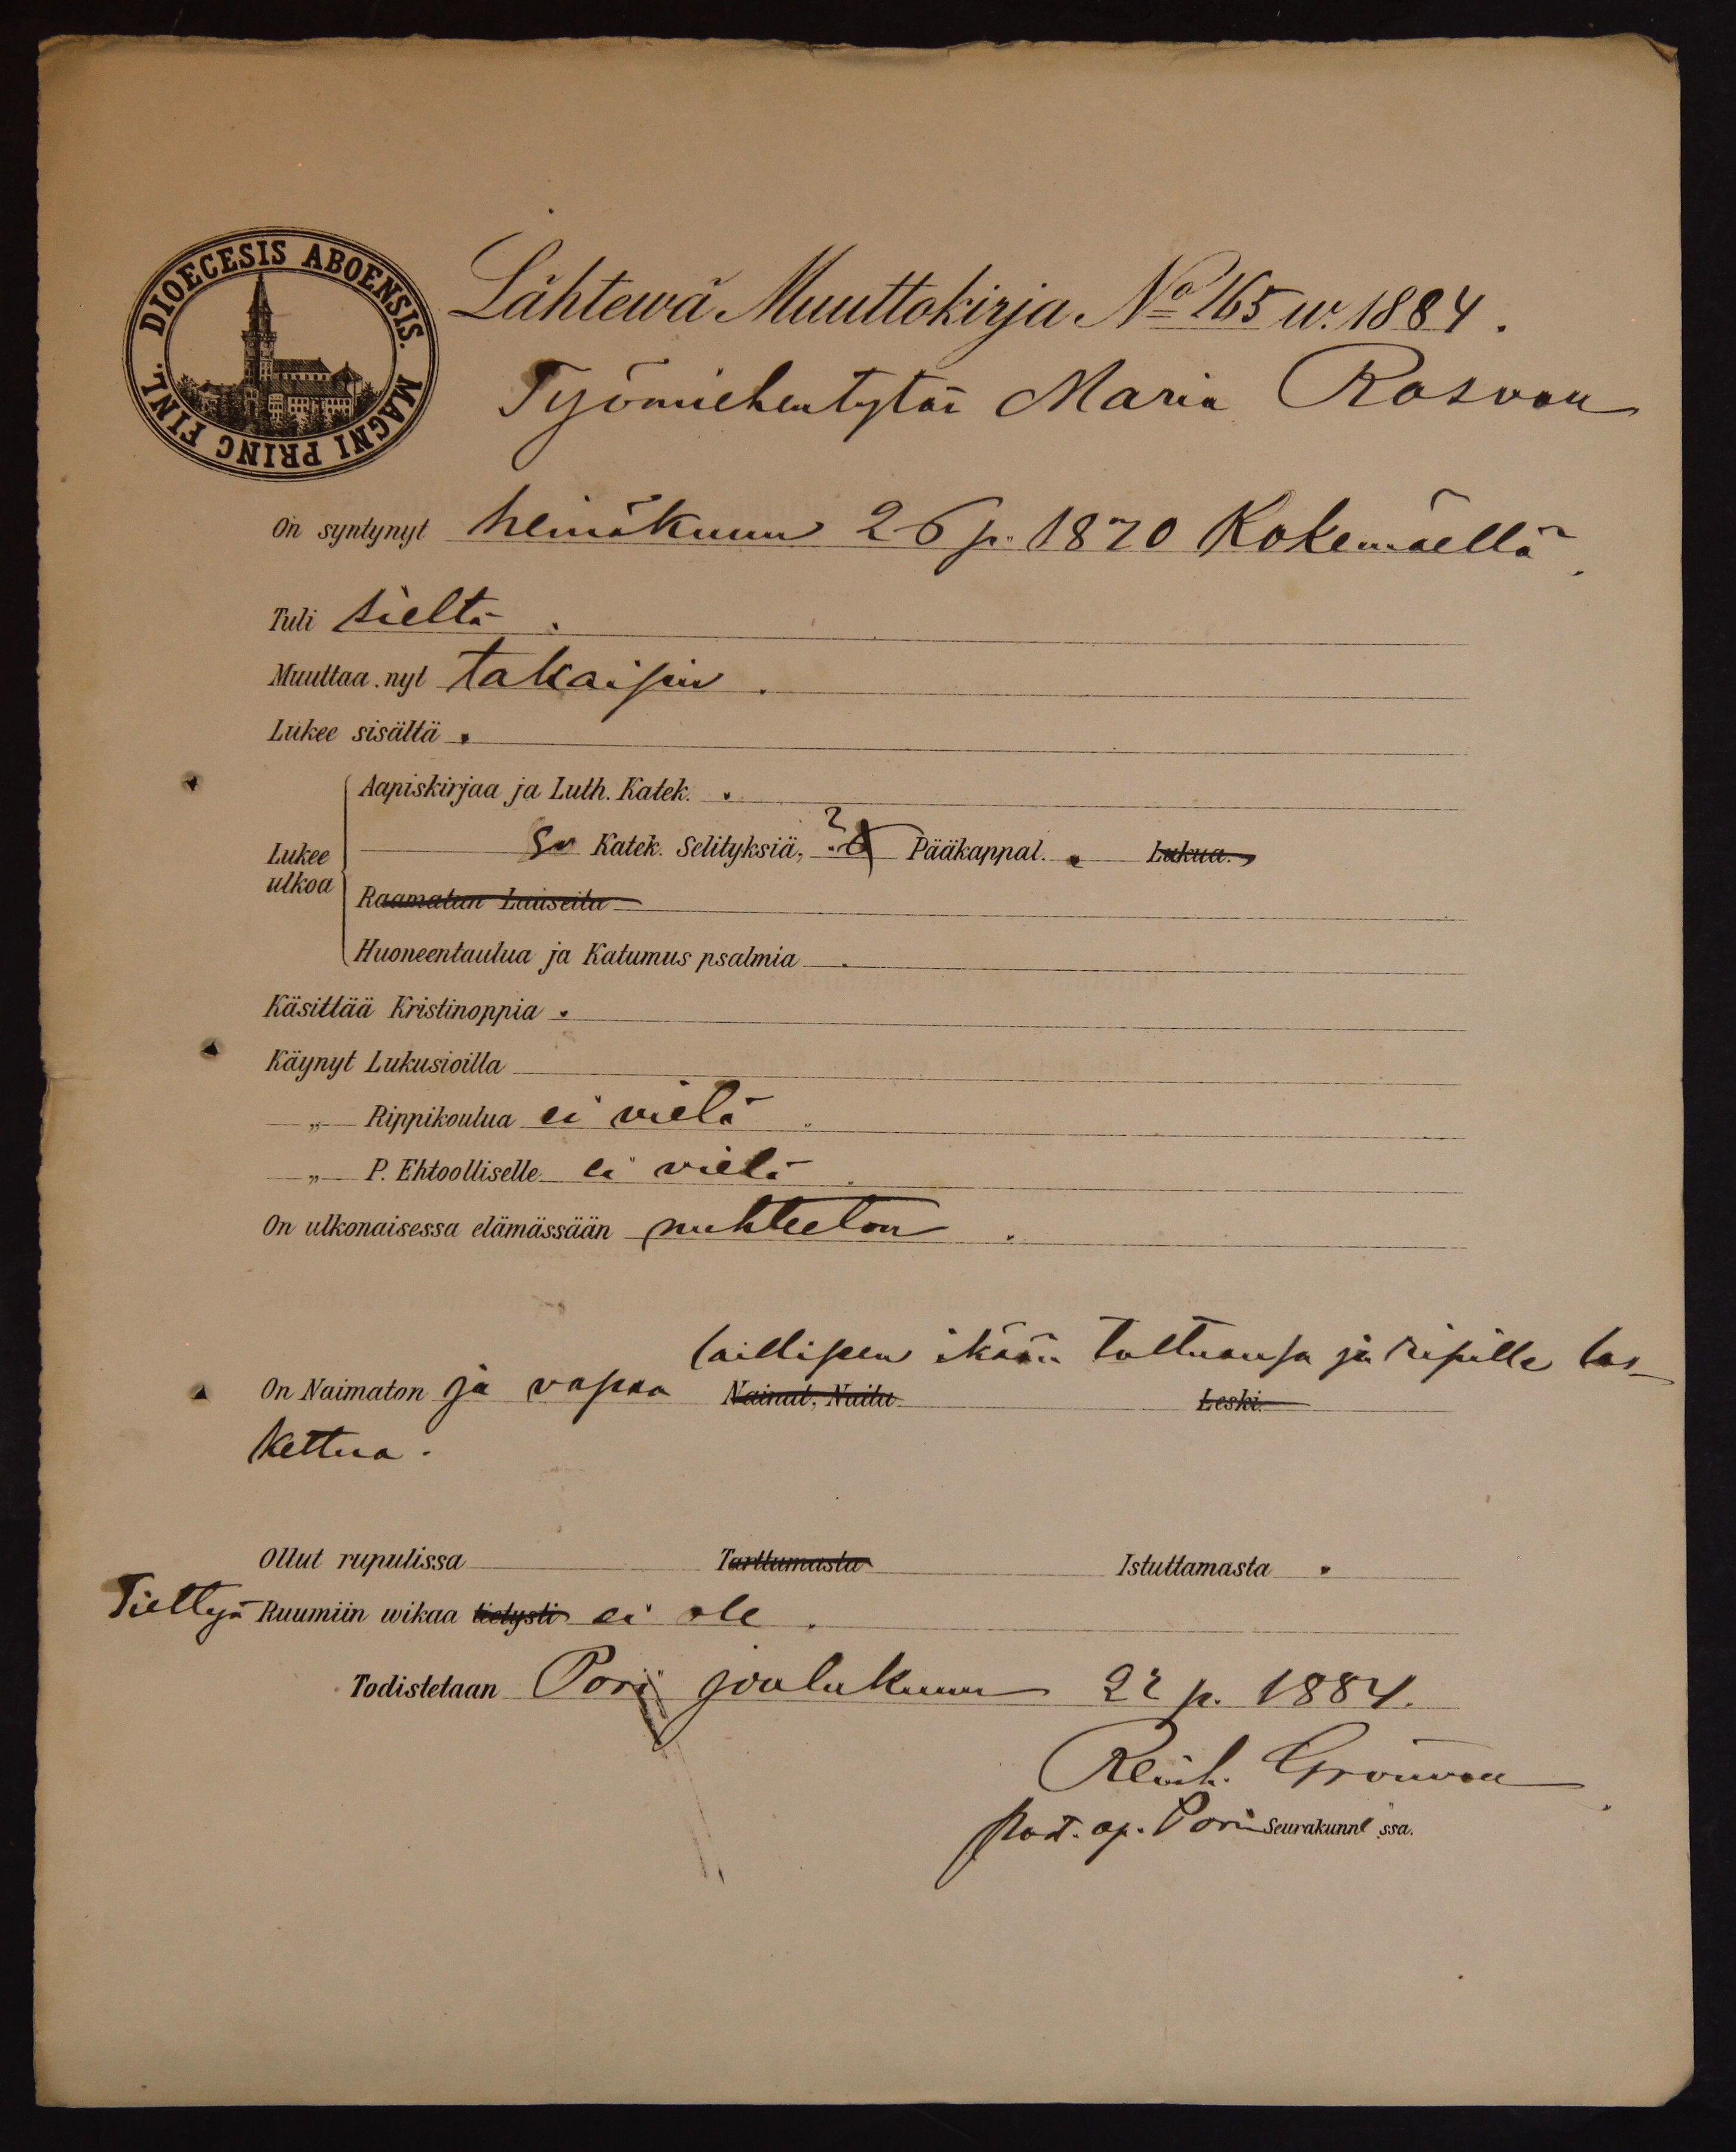 DIOECESIS ABOENSIS. MAGNI PRINC FINL.
Lähtewä Muuttokirja No 165 w. 1884.
Työmiehentytär Maria Rosvon
On syntynyt heinäkuun 26 p. 1870 Kokemäellä.
Tuli sieltä.
Muuttaa nyt takaisin.
Lukee sisältä .
Aapiskirjaa ja Luth. Katek. .
Lukee ulkoa
Sv Katek. Selityksiä, 2 Pääkappal. . Lukua.
Raamatun Lauseita
Huoneentaulua ja Katumus psalmia .
Käsittää Kristinoppia .
Käynyt Lukusioilla
„ Rippikoulua ei vielä.
„ P. Ehtoolliselle ei vielä.
On ulkonaisessa elämässään nuhteeton.
laillisen ikään tultuansa ja ripille las-
On Naimaton ja vapaa Nainut, Naitu Leski.
kettua.
Ollut rupulissa Tarttumasta Istuttamasta .
Tiettyä Ruumiin wikaa tietysti ei ole.
Todistetaan Pori joulukuun 22 p. 1884.
Reinh. Grönvall
Past. ap. Porin Seurakunn ssa.